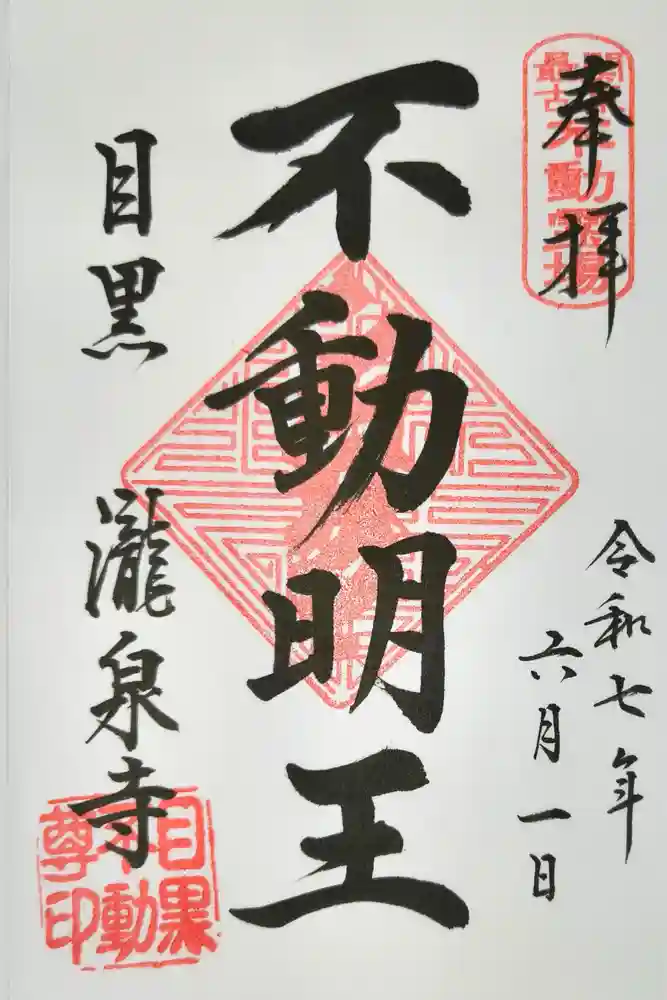 奉拝
関東最古不動霊場
令和七年
六月一日
不動明王
目黒 瀧泉寺
目黒不動尊印